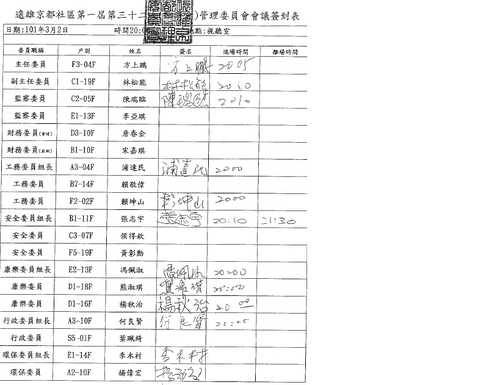 遠雄京都社區第一屆第三十二 )管理委員會會議簽到表
日期:101年3月2日 時間20:0 地點:視聽室
委員職稱 戶別 姓名 簽名 進場時間 離場時間
主任委員 F3-04F 方上鵬 方上鵬 2005
副主任委員 C1-19F 林松龍 林松龍 20:10
監察委員 C2-05F 陳瑞臨 2010
監察委員 E1-13F 李亞琪
財務委員 D3-10F 唐春金
財務委員 B1-10F 宋嘉琪
工務委員組長 A3-04F 浦達民 浦達民 2000
工務委員 B7-14F 賴敬偉
工務委員 F2-02F 賴坤山 坤山 2000
安全委員組長 B1-11F 張志宇 20:10 21:30
安全委員 C3-07F 侯得欽
安全委員 F5-19F 黃彰勳
康樂委員組長 E2-13F 馮佩淑 20:00
康樂委員 D1-18F 熊淑琪
康樂委員 D1-16F 楊秋治 楊秋治 20
行政委員組長 A3-10F 何良賢 何良賢
行政委員 S5-01F 葉珮綺
環保委員組長 E1-14F 李木村 李木村
環保委員 A2-10F 楊偉宏